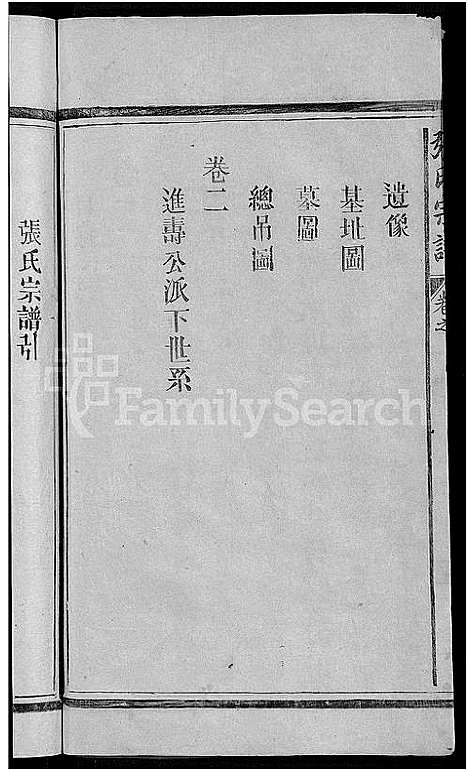 張氏宗譜
卷之
遺像
基址圖
墓圖
總吊圖
卷二
進壽公派下世系
張氏宗譜引
FamilySearch